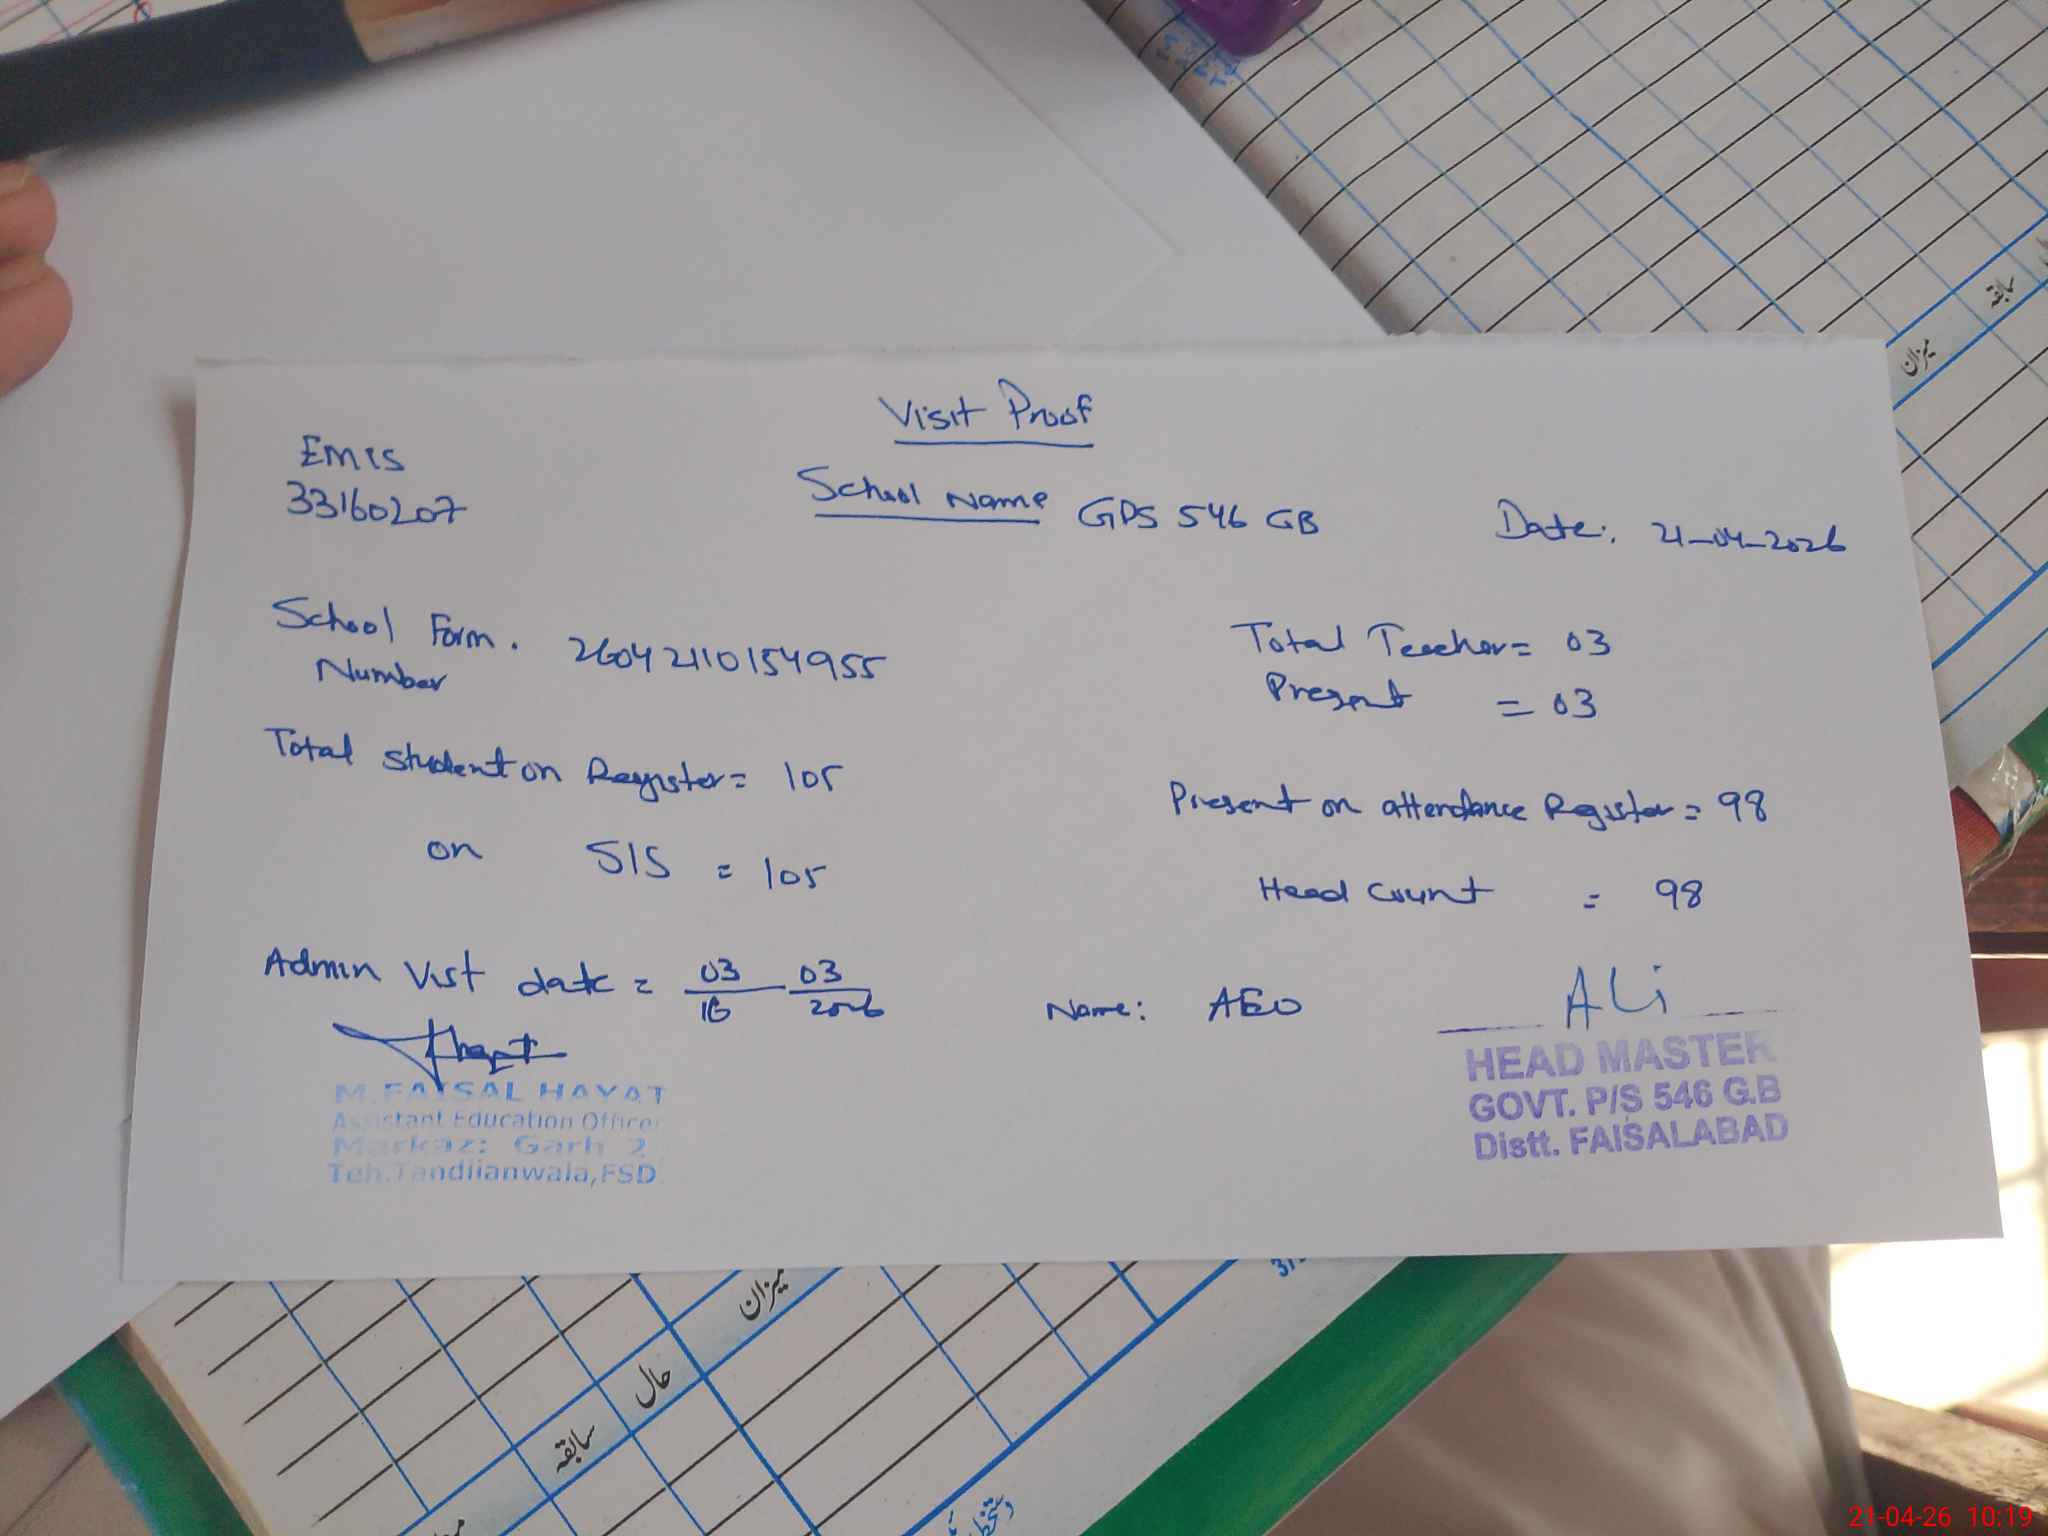 Visit Proof
EMIS
33160207
School Name GPS 546 GB
Date: 21-04-2026
School Form.
Number
26042110154955
Total Teacher = 03
Present = 03
Total student on Register = 105
on SIS = 105
Present on attendance Register = 98
Head Count = 98
Admin Vist date = 03 03
16 2026
Name: AEO
ALi
M.FAISAL HAYAT
Assistant Education Officer
Markaz: Garh 2
Teh.Tandlianwala,FSD
HEAD MASTER
GOVT. P/S 546 G.B
Distt. FAISALABAD
سابقہ
میزان
میزان
حال
سابقہ
21-04-26 10:19